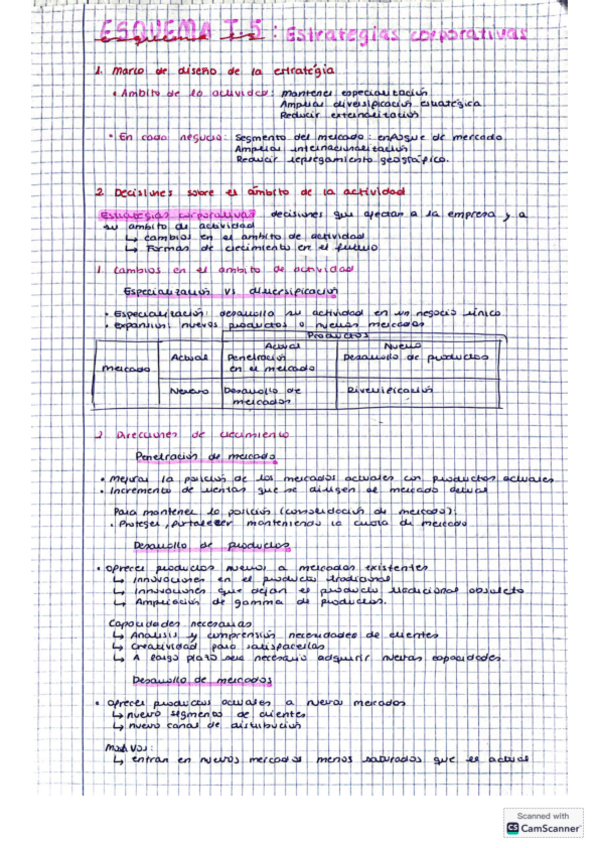 ESQUEMA T-5: Estrategias corporativas
1. Marco de diseño de la estrategia
• Ámbito de la actividad: Mantener especialización
Ampliar diversificación estratégica
Reducir externalización
• En cada negocio: Segmento del mercado: enfoque de mercado
Ampliar internacionalización
Reducir replegamiento geográfico.
2. Decisiones sobre el ámbito de la actividad
Estrategias corporativas decisiones que afectan a la empresa y a
su ámbito de actividad
↳ cambios en el ámbito de actividad
↳ Formas de crecimiento en el futuro
1. Cambios en el ámbito de actividad
Especialización vs diversificación
• Especialización: desarrolla su actividad en un negocio único
• expansión: nuevos productos o nuevos mercados
Productos
Actual Nuevo
Mercado Actual Penetración en el mercado Desarrollo de productos
Nuevo Desarrollo de mercados Diversificación
2 Direcciones de crecimiento
Penetración de mercado
• Mejorar la posición de los mercados actuales con productos actuales
• Incremento de ventas que se dirigen al mercado actual
Para mantener la posición (consolidación de mercado):
• Proteger, fortalecer manteniendo la cuota de mercado
Desarrollo de productos
• ofrecer productos nuevos a mercados existentes
↳ Innovaciones en el producto tradicional
↳ Innovaciones que dejan el producto tradicional obsoleto
↳ Ampliación de gamma de productos.
Capacidades necesarias
↳ Análisis y comprensión necesidades de clientes
↳ Creatividad para satisfacerlas
↳ A largo plazo sea necesario adquirir nuevas capacidades.
Desarrollo de mercados
• ofrecer productos actuales a nuevos mercados
↳ nuevo segmento de clientes
↳ nuevo canal de distribución
Motivos:
↳ entran en nuevos mercados menos saturados que el actual
Scanned with
CS CamScanner